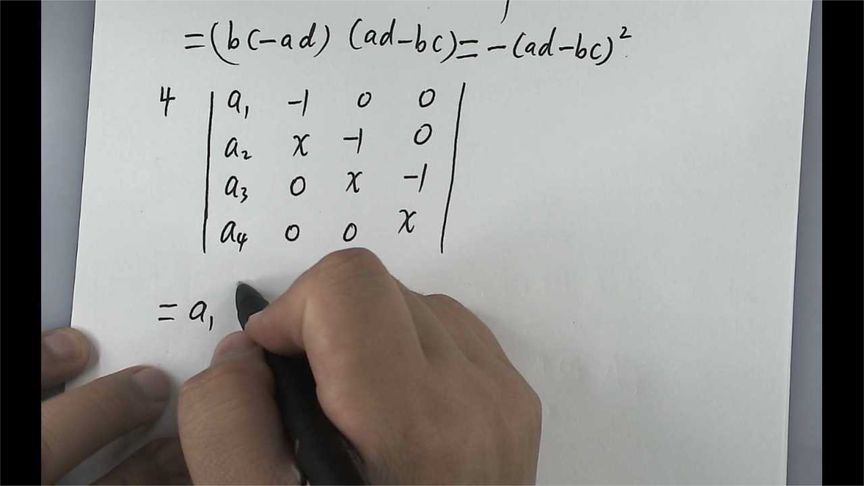 =(bc-ad) (ad-bc)=-(ad-bc)²
4 | a₁ -1 0 0 |
| a₂ x -1 0 |
| a₃ 0 x -1 |
| a₄ 0 0 x |
= a₁